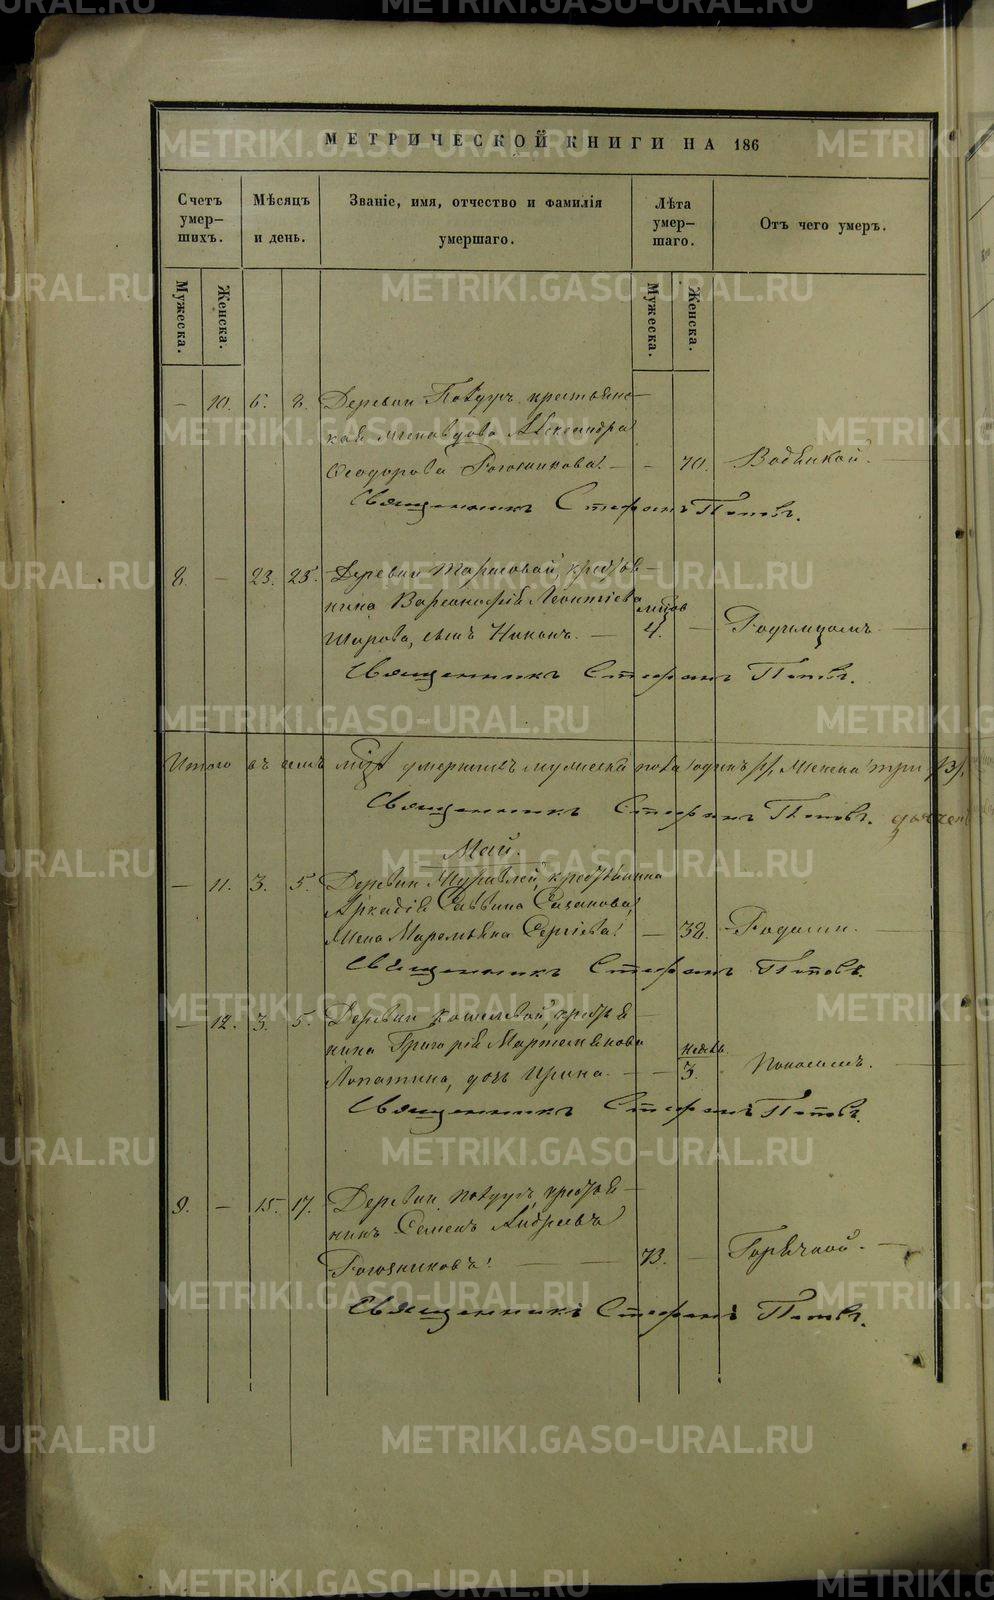 МЕТРИЧЕСКОЙ КНИГИ НА 186
Счетъ умер-шихъ.
Мѣсяцъ и день.
Званіе, имя, отчество и фамилія умершаго.
Лѣта умер-шаго.
Отъ чего умеръ.
Мужеска.
Женска.
Мужеска.
Женска.
— 10. 6. 8. Деревни крестьянс-
кая Александра
Феодорова Рогозникова. — — 70. Водянкой.
Священникъ Стефанъ Поповъ.
8. — 23. 25. Деревни Тарасовой, крестья-
нина Варсонофія Леонтіева
Шарова, сынъ Никонъ. — 4. — Родимцомъ
Священникъ Стефанъ Поповъ.
Итого въ семъ умершихъ мужеска пола одинъ /1/, женска три /3/,
Священникъ Стефанъ Поповъ.
Май.
— 11. 3. 5. Деревни крестьянина
Аркадія Саввина Сазанова,
жена Маремьяна Сергіева. — 38. Родами.
Священникъ Стефанъ Поповъ.
— 12. 3. 5. Деревни Кошелевой, крестья-
нина Григорія Мартемьянова
Лопатина, дочь Ирина. — — недѣль 3. Поносомъ.
Священникъ Стефанъ Поповъ.
9. — 15. 17. Деревни крестья-
нинъ Семенъ Андреевъ
Рогозниковъ. — 73. — Горячкой.
Священникъ Стефанъ Поповъ.
METRIKI.GASO-URAL.RU